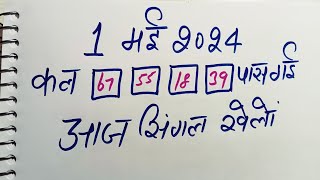 1 मई 2024
कल 67 55 18 39 पास गई
आज सिंगल खेलों